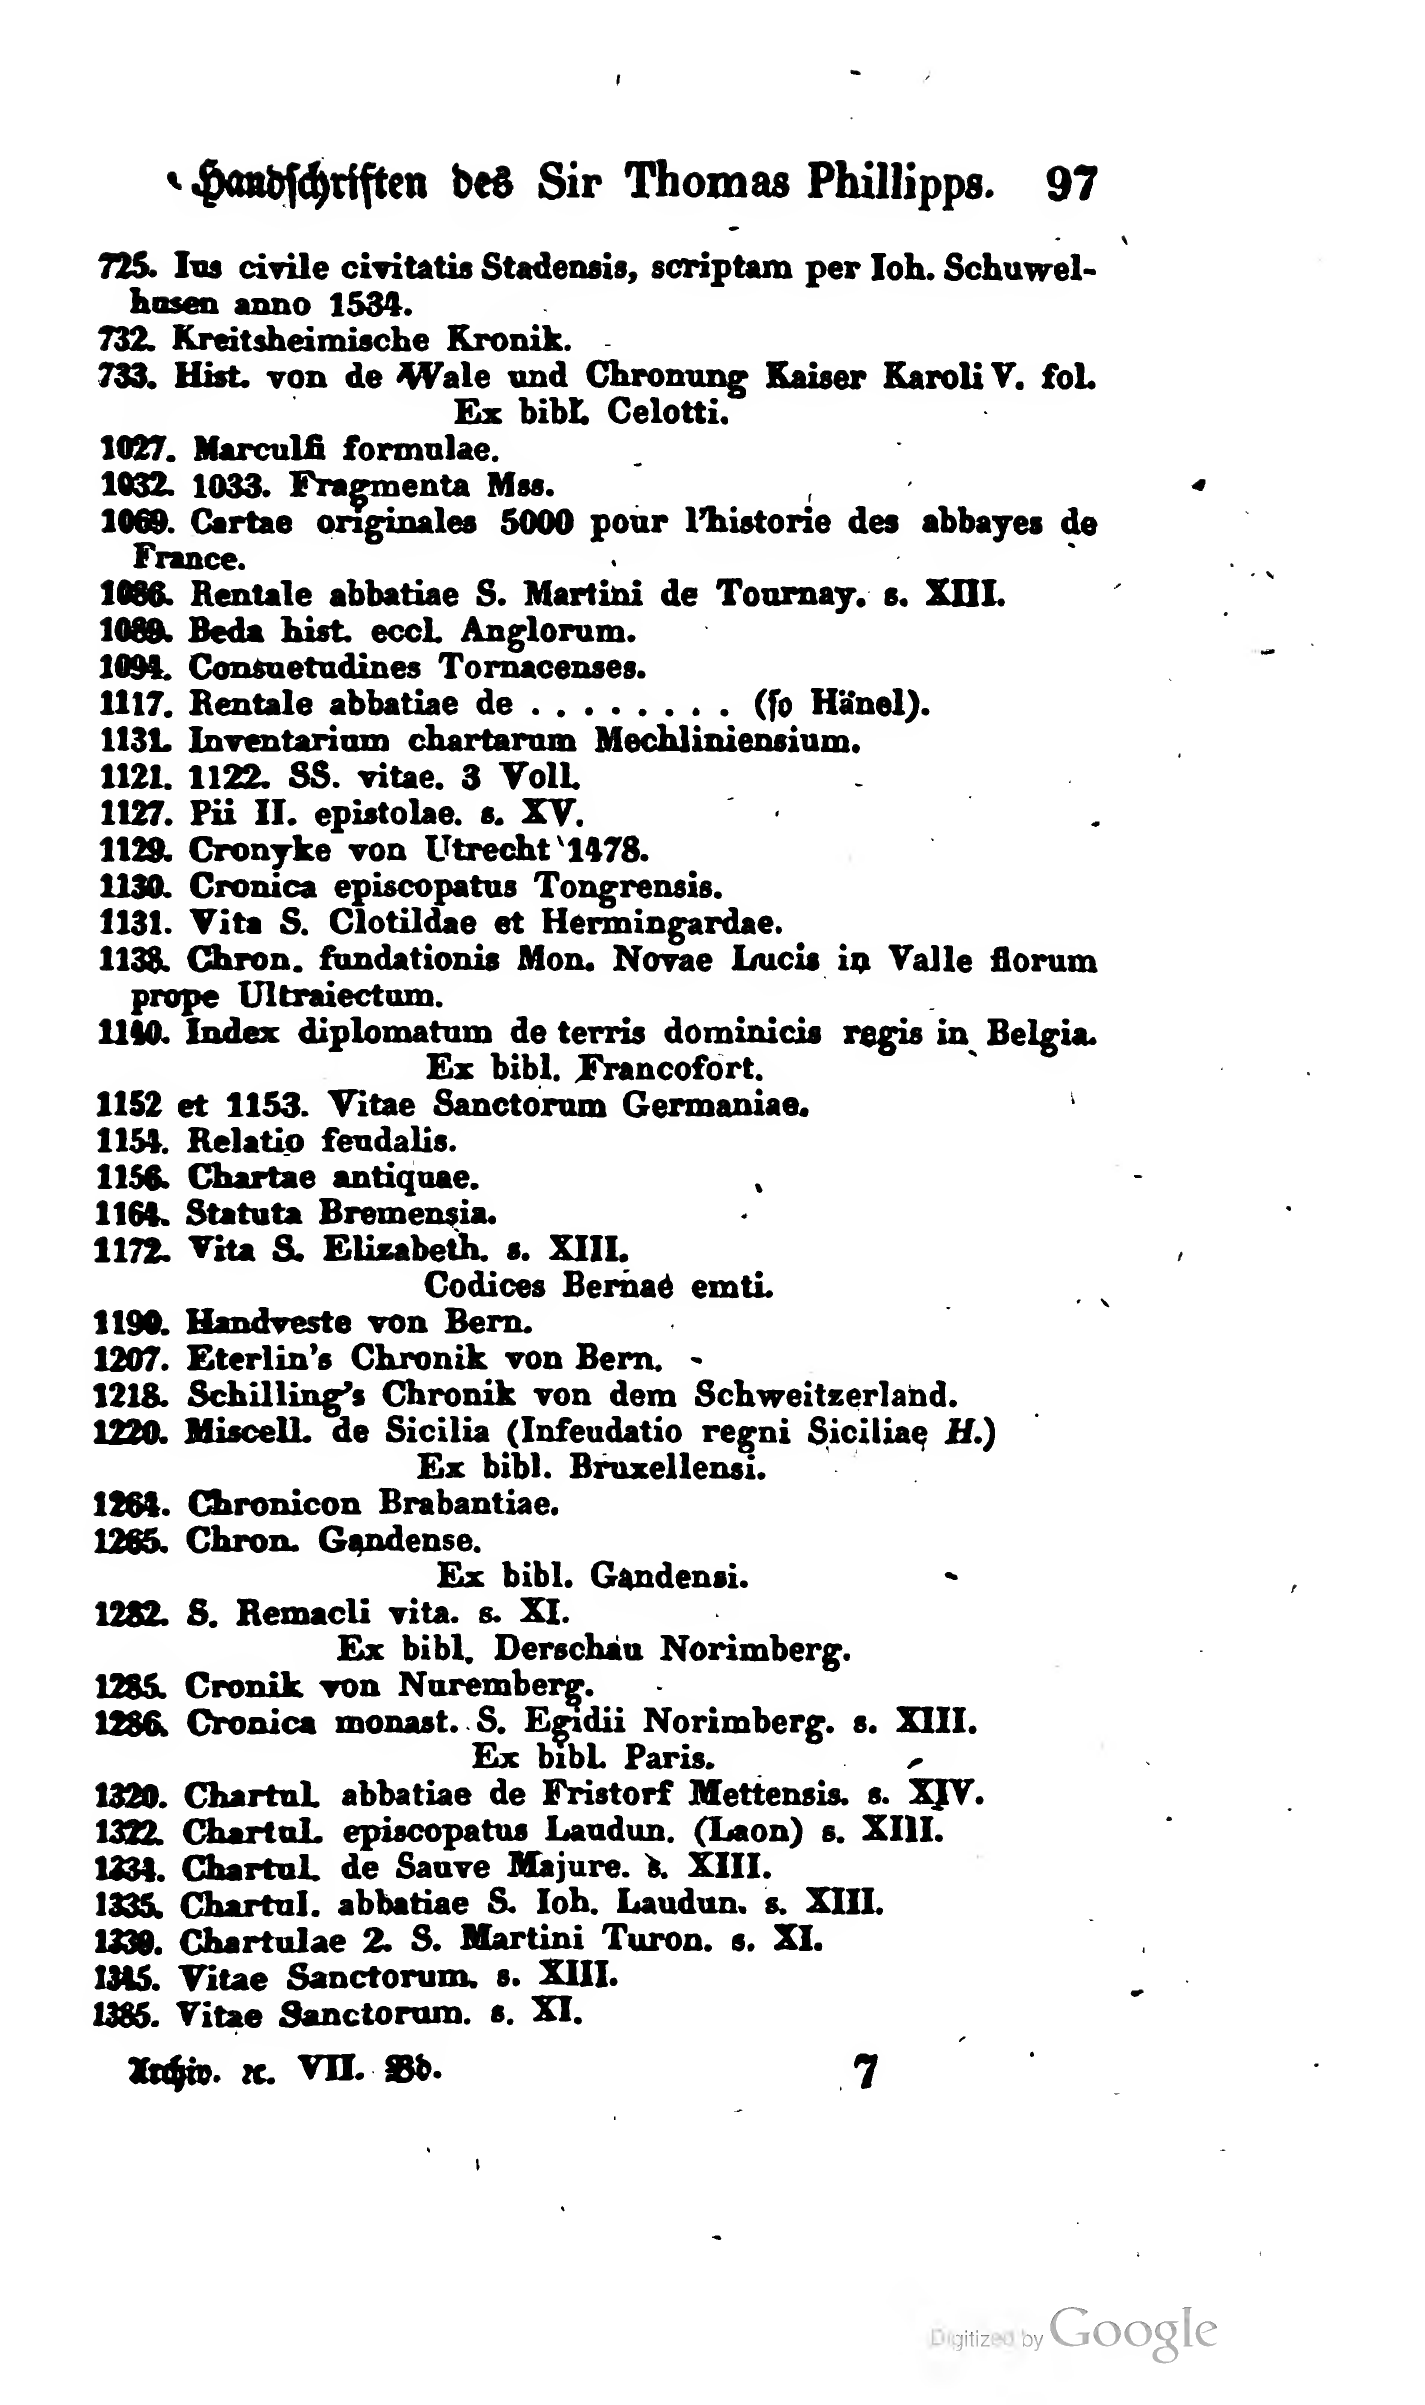 Handschriften des Sir Thomas Phillipps. 97
725. Ius civile civitatis Stadensis, scriptam per Ioh. Schuwel-
husen anno 1534.
732. Kreitsheimische Kronik.
733. Hist. von de Wale und Chronung Kaiser Karoli V. fol.
Ex bibl. Celotti.
1027. Marculfi formulae.
1032. 1033. Fragmenta Mss.
1069. Cartae originales 5000 pour l'historie des abbayes de
France.
1086. Rentale abbatiae S. Martini de Tournay. s. XIII.
1089. Beda hist. eccl. Anglorum.
1094. Consuetudines Tornacenses.
1117. Rentale abbatiae de . . . . . . . . (so Hänel).
1131. Inventarium chartarum Mechliniensium.
1121. 1122. SS. vitae. 3 Voll.
1127. Pii II. epistolae. s. XV.
1129. Cronyke von Utrecht 1478.
1130. Cronica episcopatus Tongrensis.
1131. Vita S. Clotildae et Hermingardae.
1138. Chron. fundationis Mon. Novae Lucis in Valle florum
prope Ultraiectum.
1140. Index diplomatum de terris dominicis regis in Belgia.
Ex bibl. Francofort.
1152 et 1153. Vitae Sanctorum Germaniae.
1154. Relatio feudalis.
1156. Chartae antiquae.
1164. Statuta Bremensia.
1172. Vita S. Elizabeth. s. XIII.
Codices Bernae emti.
1190. Handveste von Bern.
1207. Eterlin's Chronik von Bern.
1218. Schilling's Chronik von dem Schweitzerland.
1220. Miscell. de Sicilia (Infeudatio regni Siciliae H.)
Ex bibl. Bruxellensi.
1264. Chronicon Brabantiae.
1265. Chron. Gandense.
Ex bibl. Gandensi.
1282. S. Remacli vita. s. XI.
Ex bibl. Derschau Norimberg.
1285. Cronik von Nuremberg.
1286. Cronica monast. S. Egidii Norimberg. s. XIII.
Ex bibl. Paris.
1320. Chartul. abbatiae de Fristorf Mettensis. s. XIV.
1322. Chartul. episcopatus Laudun. (Laon) s. XIII.
1334. Chartul. de Sauve Majure. s. XIII.
1335. Chartul. abbatiae S. Ioh. Laudun. s. XIII.
1339. Chartulae 2. S. Martini Turon. s. XI.
1345. Vitae Sanctorum. s. XIII.
1385. Vitae Sanctorum. s. XI.
Archiv. ꝛc. VII. Bd. 7
Digitized by Google